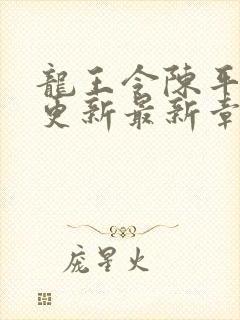 龍王令陳平
更新最新章
龐星火